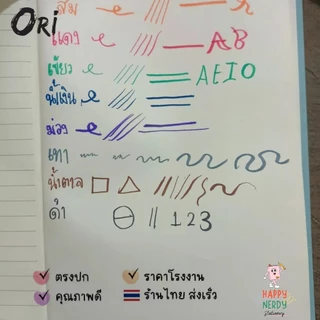 ORi
ส้ม
แดง AB
เขียว AEIO
น้ำเงิน
ม่วง
เทา
น้ำตาล
ดำ 123
ตรงปก ราคาโรงงาน
คุณภาพดี ร้านไทย ส่งเร็ว
HAPPY
NERDY
Stationery